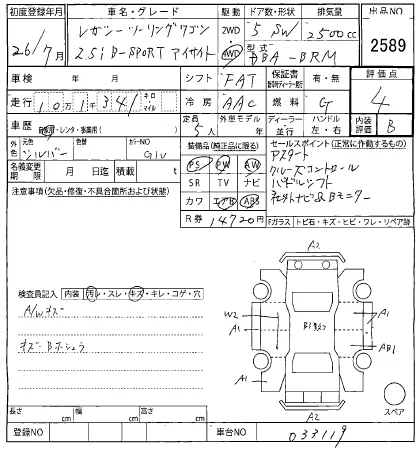 初度登録年月 車名・グレード 駆動 ドア数・形状 排気量 出品NO
26/7月 レガシーツーリングワゴン 2WD 4WD 5 SW 2500cc 2589
2.5i B-SPORT アイサイト 型式 DBA-BRM
車検 年 月 日 シフト FAT 保証書 有・無 評価点
走行 10万1千341 キロ マイル 冷房 AAC 燃料 G 4
車歴 自家用・レンタ・事業用( ) 定員 5人 外車モデル 年 ディーラー 並行 ハンドル 左・右 内装評価 B
外色 元色 シルバー 色替 カラーNO G1U 装備品(純正品に限る) セールスポイント(正常に作動するもの)
名義変更期限 月 日迄 積載 t PS PW AW アイスタート
注意事項(欠品・修復・不具合箇所および状態) SR TV ナビ クルーズコントロール
カワ エアB ABS パドルシフト
R券 14720円 ナビ&Bモニター
Fガラス トビ石・キズ・ヒビ・ワレ・リペア跡
検査員記入 内装 汚レ・スレ・キズ・キレ・コゲ・穴
A/Wキズ
キズBホシュウ
A2
W2
A1
A1
AB1
A1
A2
スペア
長さ cm 幅 cm 高さ cm
登録NO 車台NO 033119